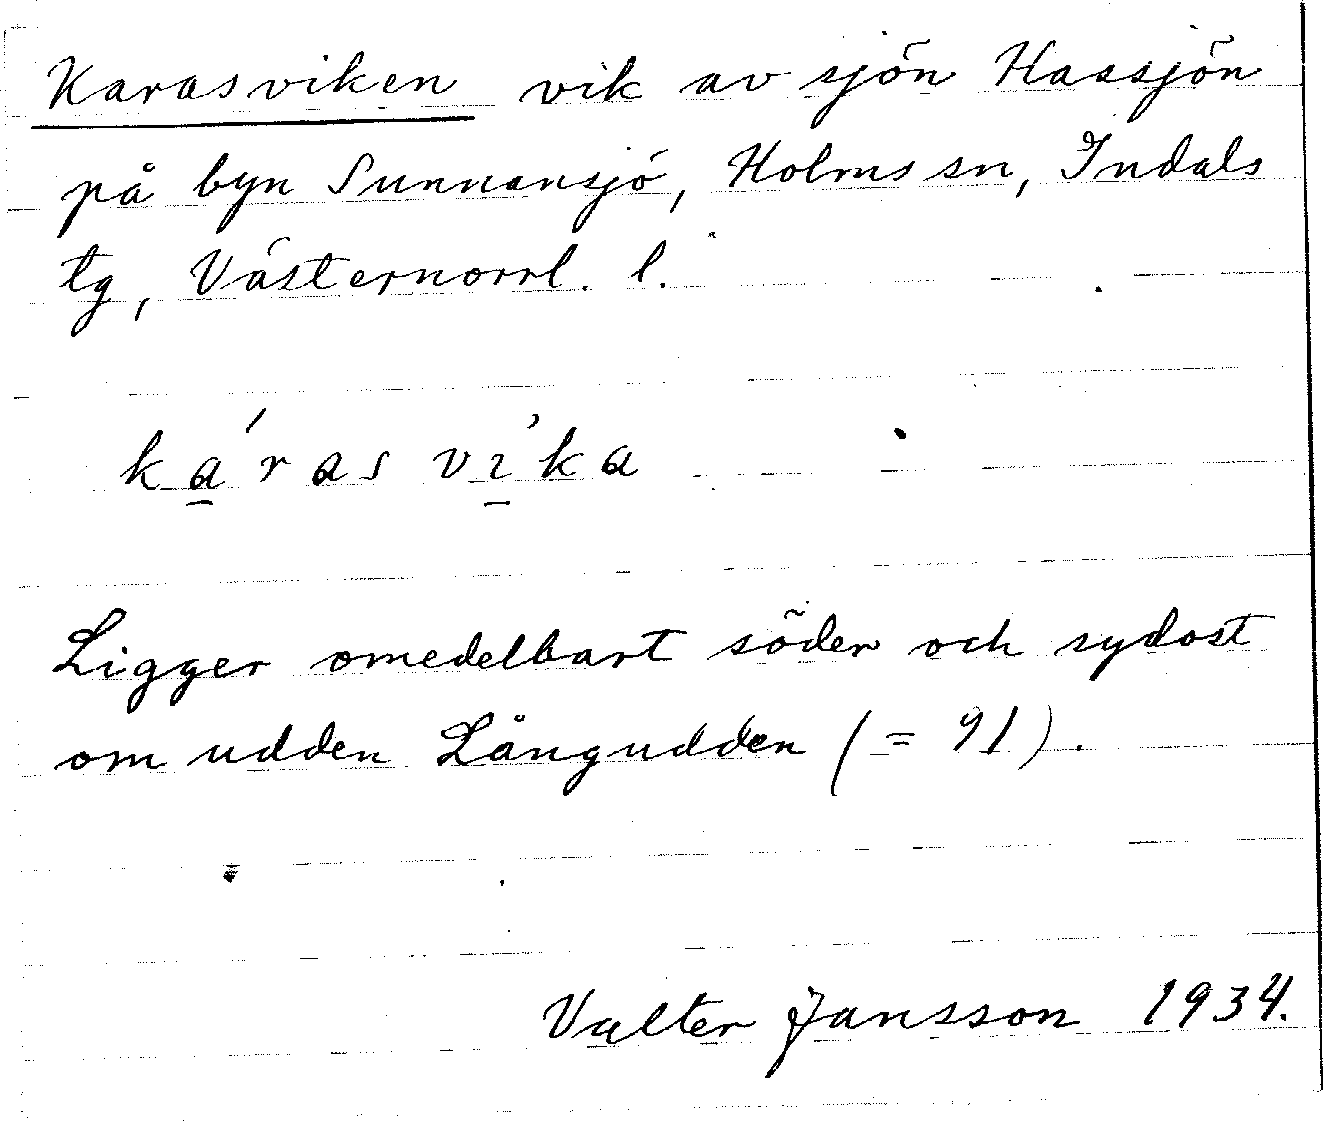 Karasviken vik av sjön Hassjön
på byn Sunnansjö, Holms sn, Indals
tg, Västernorrl. l.
ka̱´ras vı̱̓ka
Ligger omedelbart söder och sydost
om udden Långudden (= 91).
Valter Jansson 1934.